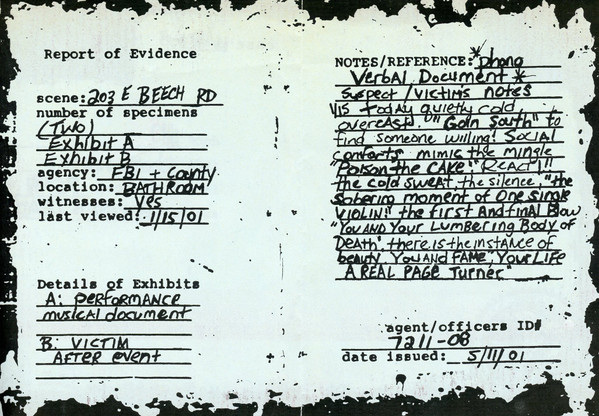 Report of Evidence
scene: 203 E BEECH RD
number of specimens
(TWO)
Exhibit A
Exhibit B
agency: FBI + County
location: BATHROOM
witnesses: Yes
last viewed: 1/15/01
Details of Exhibits
A: performance
musical document
B: VICTIM
AFTER event
NOTES/REFERENCE: *phono
Verbal Document *
Suspect/victims notes
"IS today quietly cold,
overcast. "Goin South" to
find someone willing! Social
comforts mimic the mingle
"Poison the CAKE" "REACT!"
the cold sweat, the silence, "the
sobering moment of one single
VIOLIN!" the first And final Blow
"YOU AND Your Lumbering Body of
Death", there is the instance of
beauty "You AND FAME", Your LIFE
A REAL PAGE Turner"
agent/officers ID#
7211-08
date issued: 5/11/01